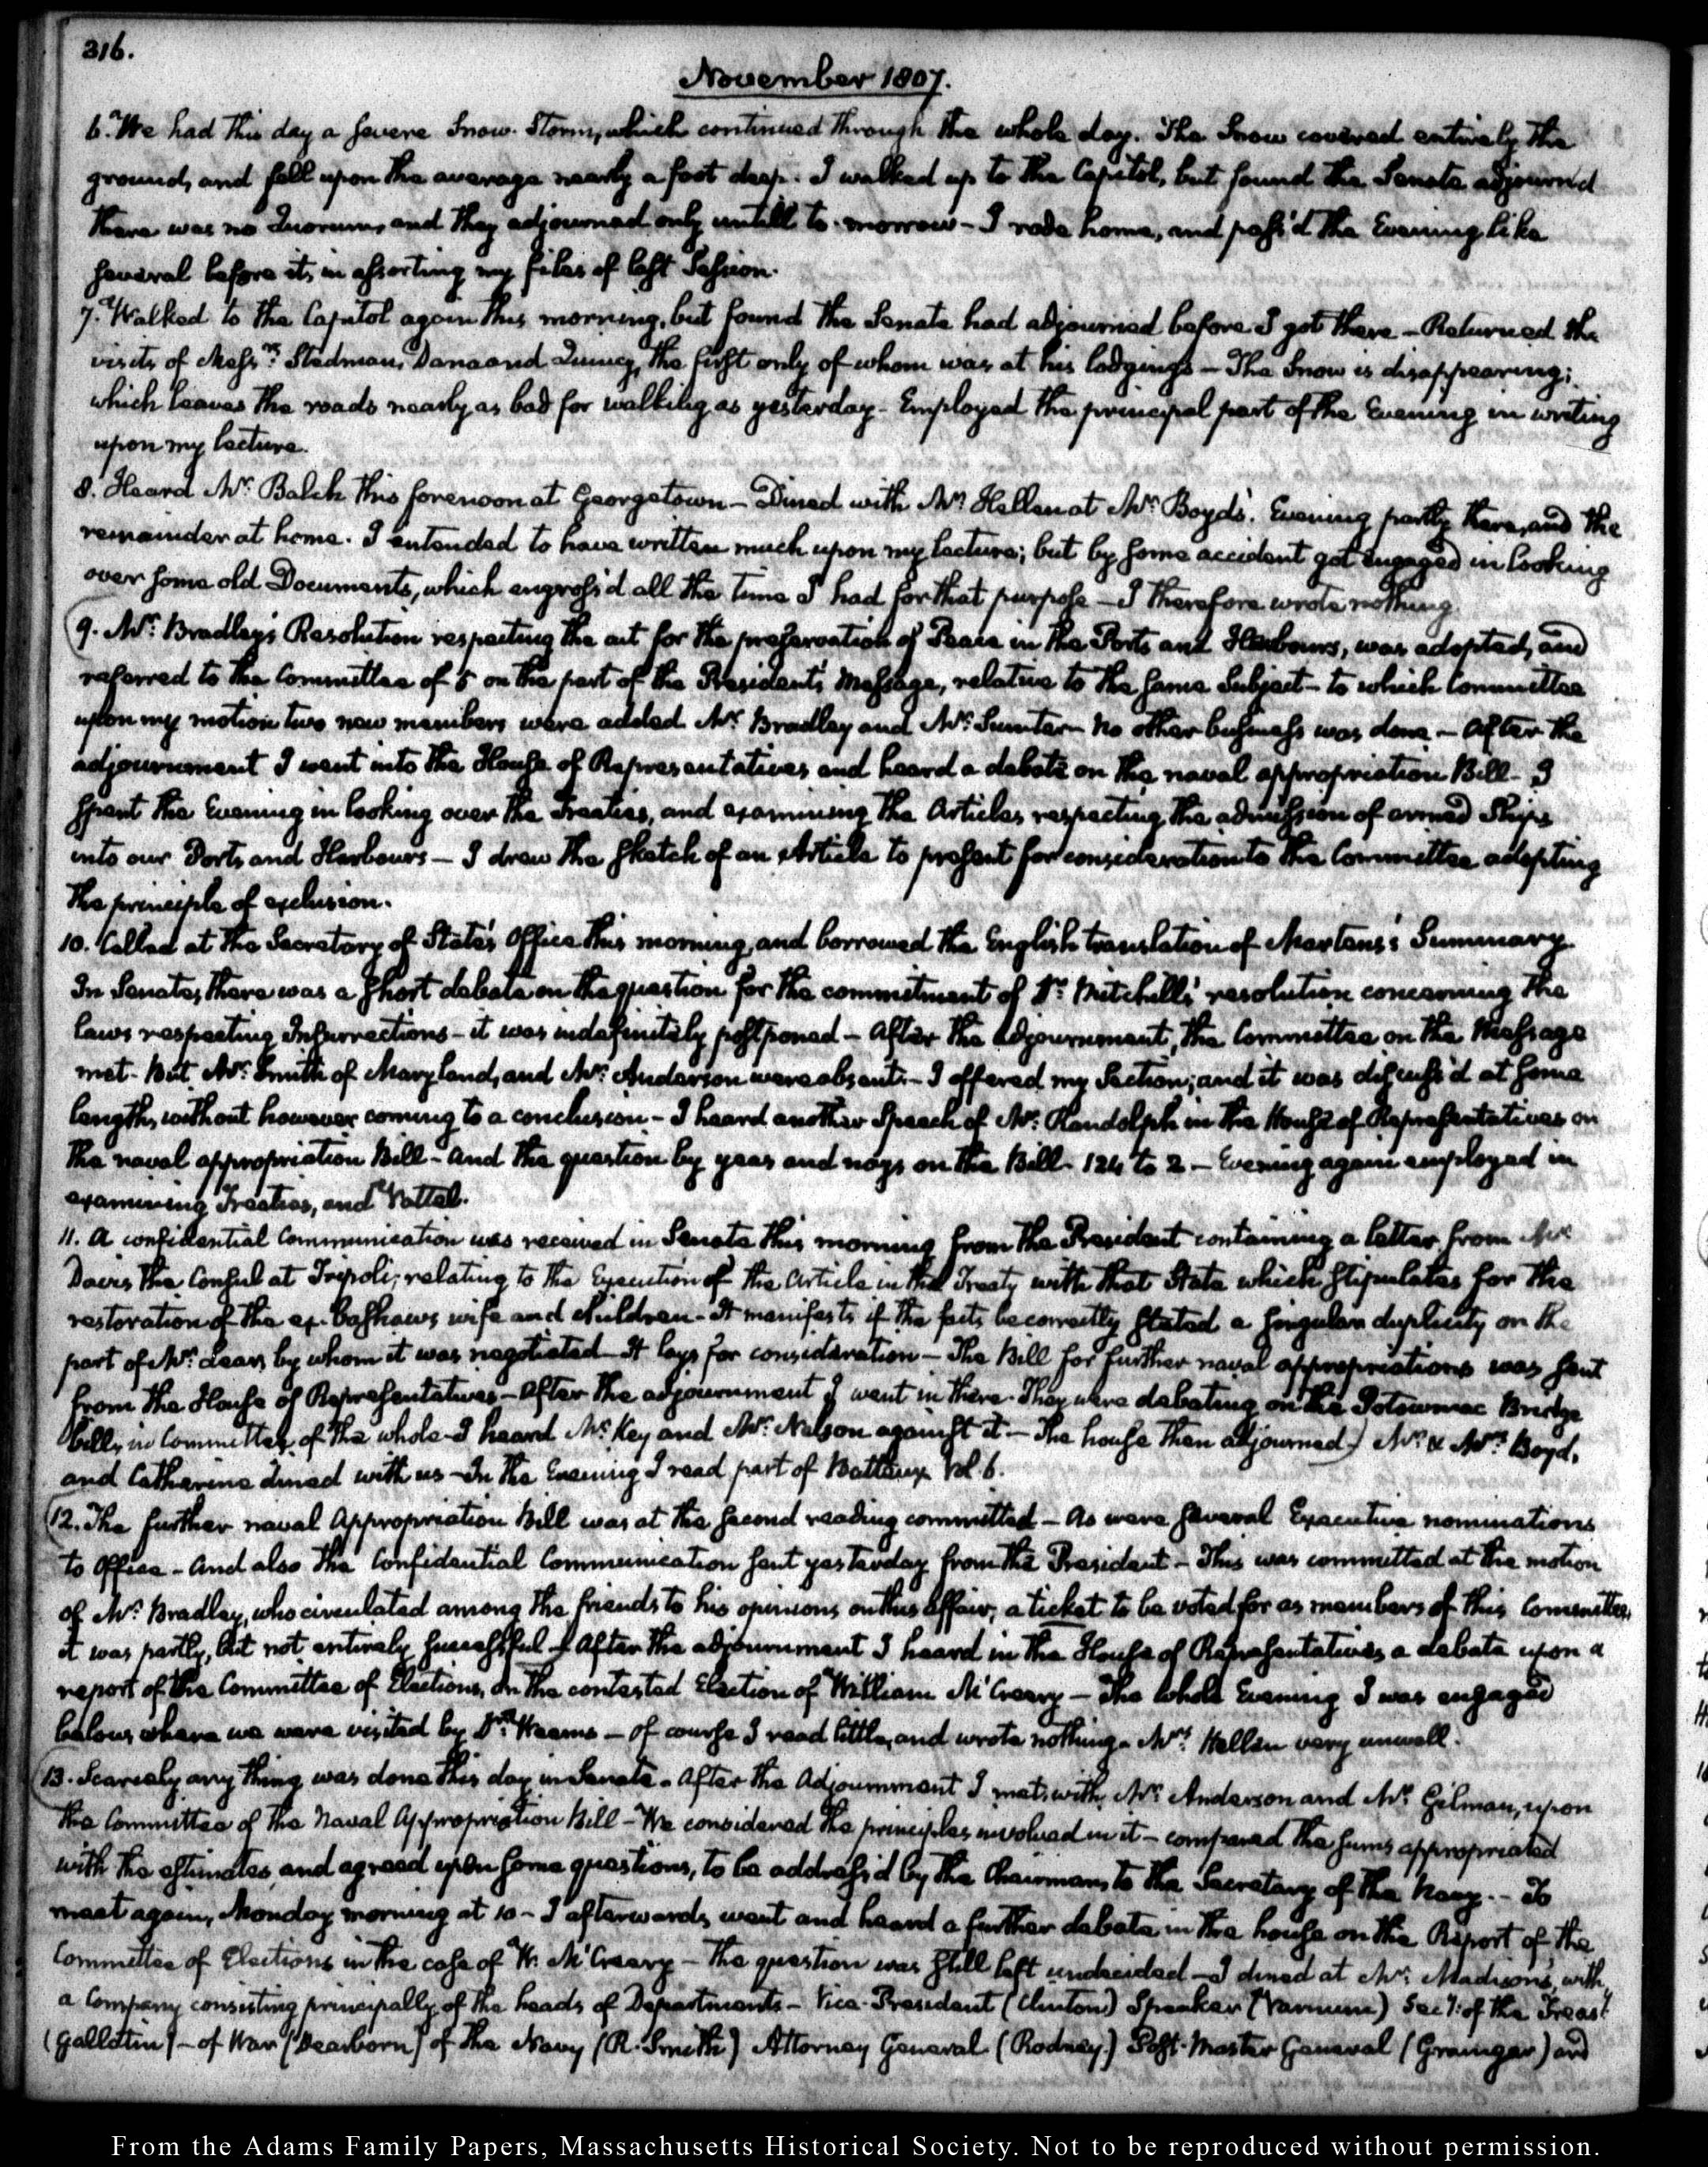 316.
November 1807.
6. We had this day a severe Snow-Storm, which continued through the whole day. The Snow covered entirely the
ground, and fell upon the average nearly a foot deep. I walked up to the Capitol, but found the Senate adjourn'd
there was no Quorum, and they adjourned only untill to-morrow - I rode home, and pass'd the Evening like
several before it, in assorting my files of last Session.
7. Walked to the Capitol again this morning, but found the Senate had adjourned before I got there - Returned the
visits of Messrs. Stedman, Dana and Quincy, the first only of whom was at his lodgings - The Snow is disappearing;
which leaves the roads nearly as bad for walking as yesterday - Employed the principal part of the Evening in writing
upon my lecture.
8. Heard Mr. Balch this forenoon at Georgetown - Dined with Mrs. Hellen at Mr. Boyd's. Evening partly there, and the
remainder at home. I intended to have written much upon my lecture; but by some accident got engaged in looking
over some old Documents, which engross'd all the time I had for that purpose - I therefore wrote nothing.
9. Mr. Bradley's Resolution respecting the act for the preservation of Peace in the Ports and Harbours, was adopted, and
referred to the Committee of 5 on the part of the President's Message, relative to the same Subject - to which Committee
upon my motion two new members were added Mr. Bradley and Mr. Sumter - No other business was done - After the
adjournment I went into the House of Representatives and heard a debate on the naval appropriation Bill - I
spent the Evening in looking over the Treaties, and examining the Articles respecting the admission of armed Ships
into our Ports and Harbours - I drew the sketch of an Article to present for consideration to the Committee adopting
the principle of exclusion.
10. Called at the Secretary of State's Office this morning, and borrowed the English translation of Martens's Summary.
In Senate, there was a short debate on the question for the commitment of Dr. Mitchill's resolution concerning the
laws respecting Insurrections - it was indefinitely postponed - After the adjournment, the Committee on the Message
met - But Mr. Smith of Maryland, and Mr. Anderson were absent - I offered my Section; and it was discuss'd at some
length, without however coming to a conclusion - I heard another Speech of Mr. Randolph in the House of Representatives on
the naval appropriation Bill - And the question by yeas and nays on the Bill - 124 to 2 - Evening again employed in
examining Treaties, and Vattel.
11. A confidential Communication was received in Senate this morning from the President containing a letter from Mr.
Davis the Consul at Tripoli, relating to the Execution of the Article in the Treaty with that State which stipulates for the
restoration of the ex-bashaw's wife and children - It manifests if the facts be correctly stated a singular duplicity on the
part of Mr. Lear, by whom it was negotiated - It lays for consideration - The Bill for further naval appropriations was sent
from the House of Representatives - After the adjournment I went in there. They were debating on the Potowmac Bridge
bill, in Committee of the whole - I heard Mr. Key and Mr. Nelson against it - The house then adjourned - Mr. & Mrs. Boyd,
and Catherine dined with us - In the Evening I read part of Batteux Vol. 6.
12. The further naval Appropriation Bill was at the second reading committed - As were several Executive nominations
to Office - And also the Confidential Communication sent yesterday from the President - This was committed at the motion
of Mr. Bradley, who circulated among the friends to his opinions on this affair, a ticket to be voted for as members of this Committee,
it was partly, but not entirely successful - After the adjournment I heard in the House of Representatives a debate upon a
report of the Committee of Elections, on the contested Election of William McCreery - The whole Evening I was engaged
below, where we were visited by Dr. Weems - of course I read little, and wrote nothing - Mrs. Hellen very unwell.
13. Scarcely any thing was done this day in Senate - After the Adjournment I met with Mr. Anderson and Mr. Gilman, upon
the Committee of the Naval Appropriation Bill - We considered the principles involved in it - compared the sums appropriated
with the estimates, and agreed upon some questions, to be address'd by the Chairman, to the Secretary of the Navy. - To
meet again, Monday morning at 10 - I afterwards went and heard a further debate in the house on the Report of the
Committee of Elections in the case of W. McCreery - The question was still left undecided - I dined at Mr. Madison's, with
a Company consisting principally of the heads of Departments - Vice-President (Clinton) Speaker (Varnum) Secy. of the Treasy.
(Gallatin) - of War (Dearborn) of the Navy (R. Smith) Attorney General (Rodney.) Post-Master General (Grainger) and
From the Adams Family Papers, Massachusetts Historical Society. Not to be reproduced without permission.